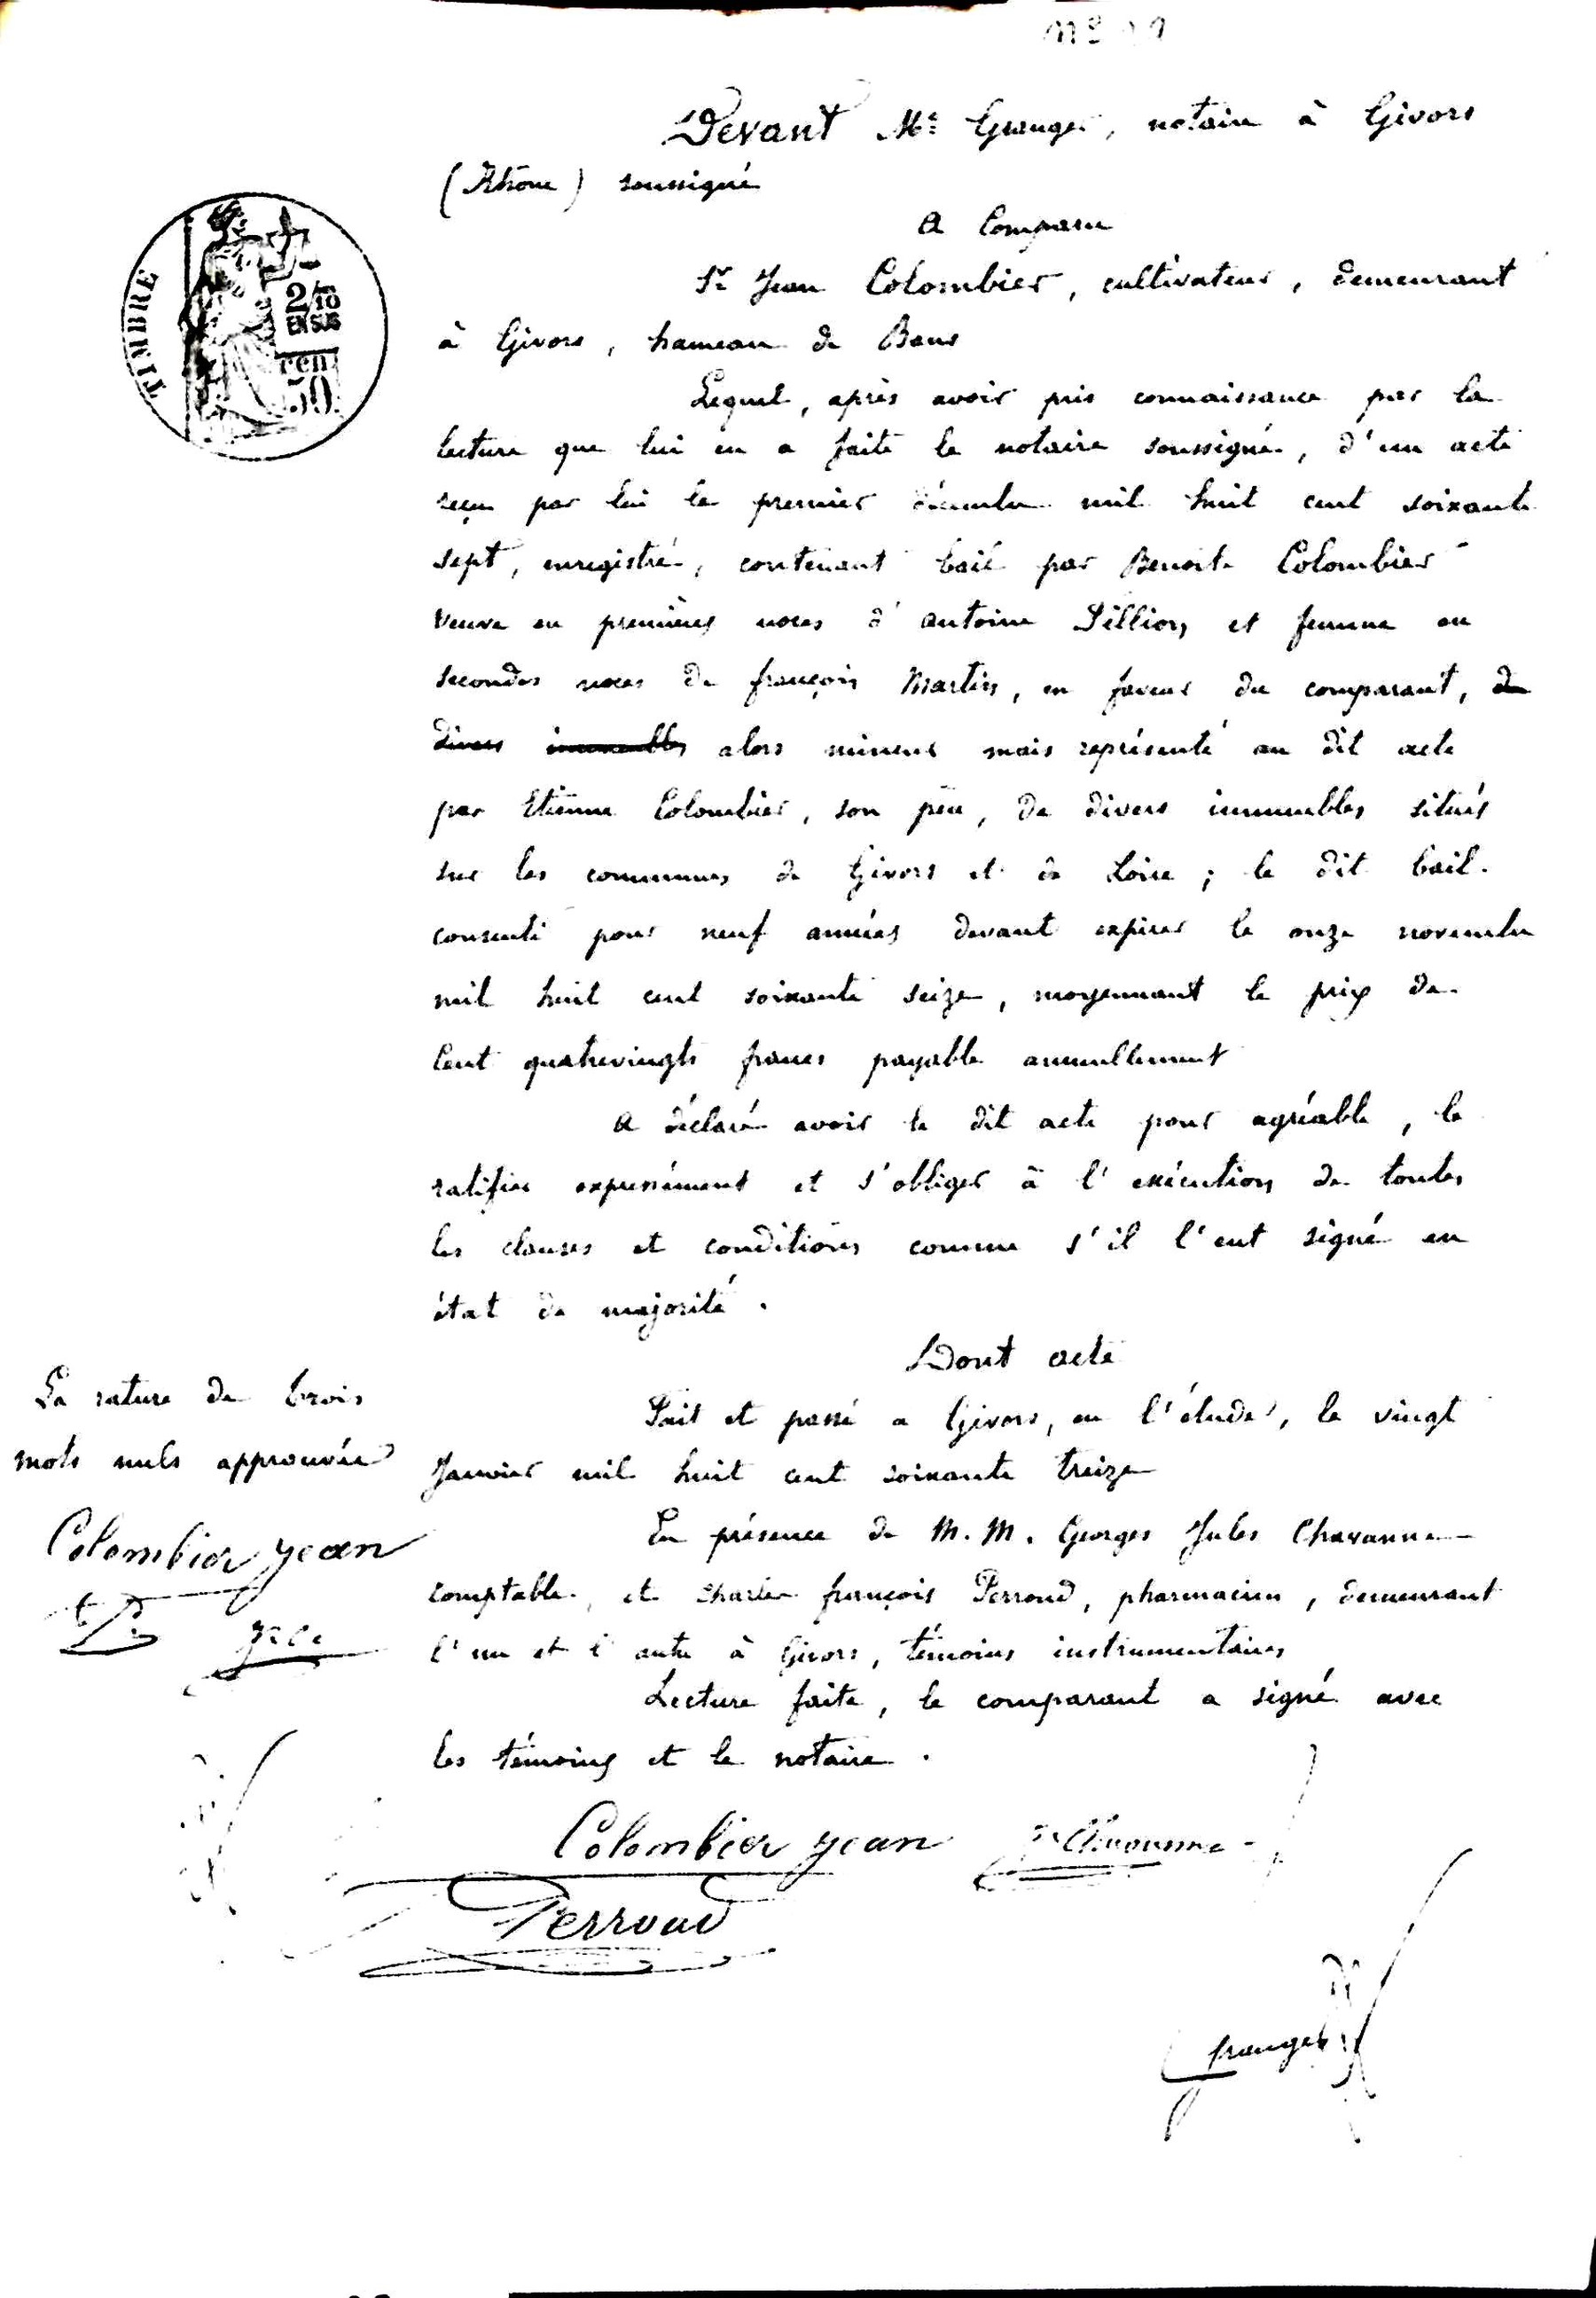 Devant Me Granger, notaire à Givors
(Rhône) soussigné
A Comparu
Sr Jean Colombier, cultivateur, demeurant
à Givors, hameau de Bans
TIMBRE
2/10
EN SUS
50
Lequel, après avoir pris connaissance par la
lecture que lui en a faite le notaire soussigné, d'un acte
reçu par lui le premier décembre mil huit cent soixante
sept, enregistré, contenant bail par Benoite Colombier
veuve en premières noces d'antoine Pillion et femme en
secondes noces de françois Martin, en faveur du comparant, de
divers immeubles alors mineur mais représenté au dit acte
par Etienne Colombier, son père, de divers immeubles situés
sur les communes de Givors et de Loire ; le dit bail
consenti pour neuf années devant expirer le onze novembre
mil huit cent soixante seize, moyennant le prix de
Cent quatrevingts francs payable annuellement
A déclaré avoir le dit acte pour agréable, le
ratifier expressément et s'obliger à l'exécution de toutes
les clauses et conditions comme s'il l'eut signé en
état de majorité.
Dont acte
Fait et passé a Givors, en l'étude, le vingt
Janvier mil huit cent soixante treize
En présence de M. M. Georges Jules Chavanne
comptable, et Charles françois Perroud, pharmacien, demeurant
l'un et l'autre à Givors, témoins instrumentaires
Lecture faite, le comparant a signé avec
les témoins et le notaire.
La rature de trois
mots nuls approuvée
Colombier jean
Colombier jean
Chavanne
Perroud
Granger